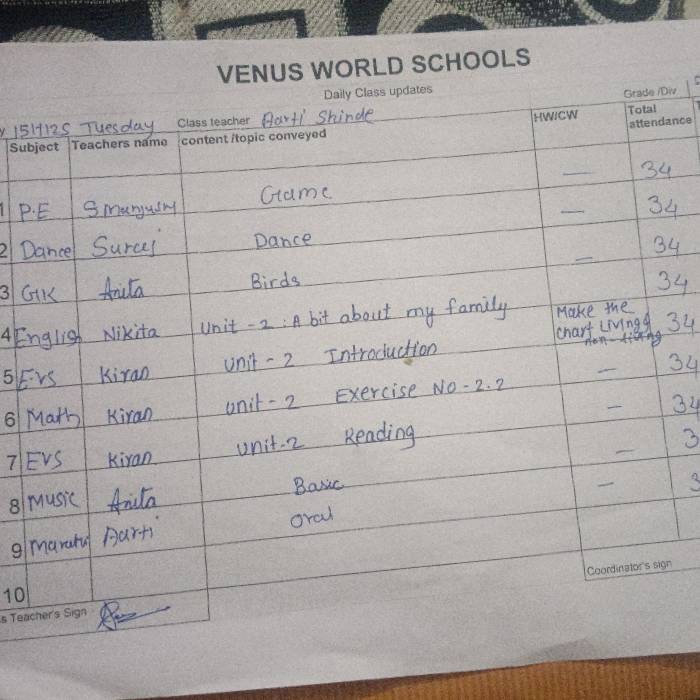 VENUS WORLD SCHOOLS
Daily Class updates
Grade /Div
Tuesday Class teacher Aarti Shinde
Subject Teachers name content /topic conveyed HW/CW Total attendance
1 P.E Game — 34
2 Dance Dance — 34
3 GK Anita Birds — 34
4 English Nikita Unit - 2 : A bit about my family 34
5 EVS Kiran unit - 2 Introduction Make the chart Living & non-living 34
6 Math Kiran unit - 2 Exercise No - 2.2 — 34
7 EVS Kiran unit-2 Reading — 34
8 Music Anita Basic — 3
9 Aarti oral — 3
10
s Teacher's Sign
Coordinator's sign